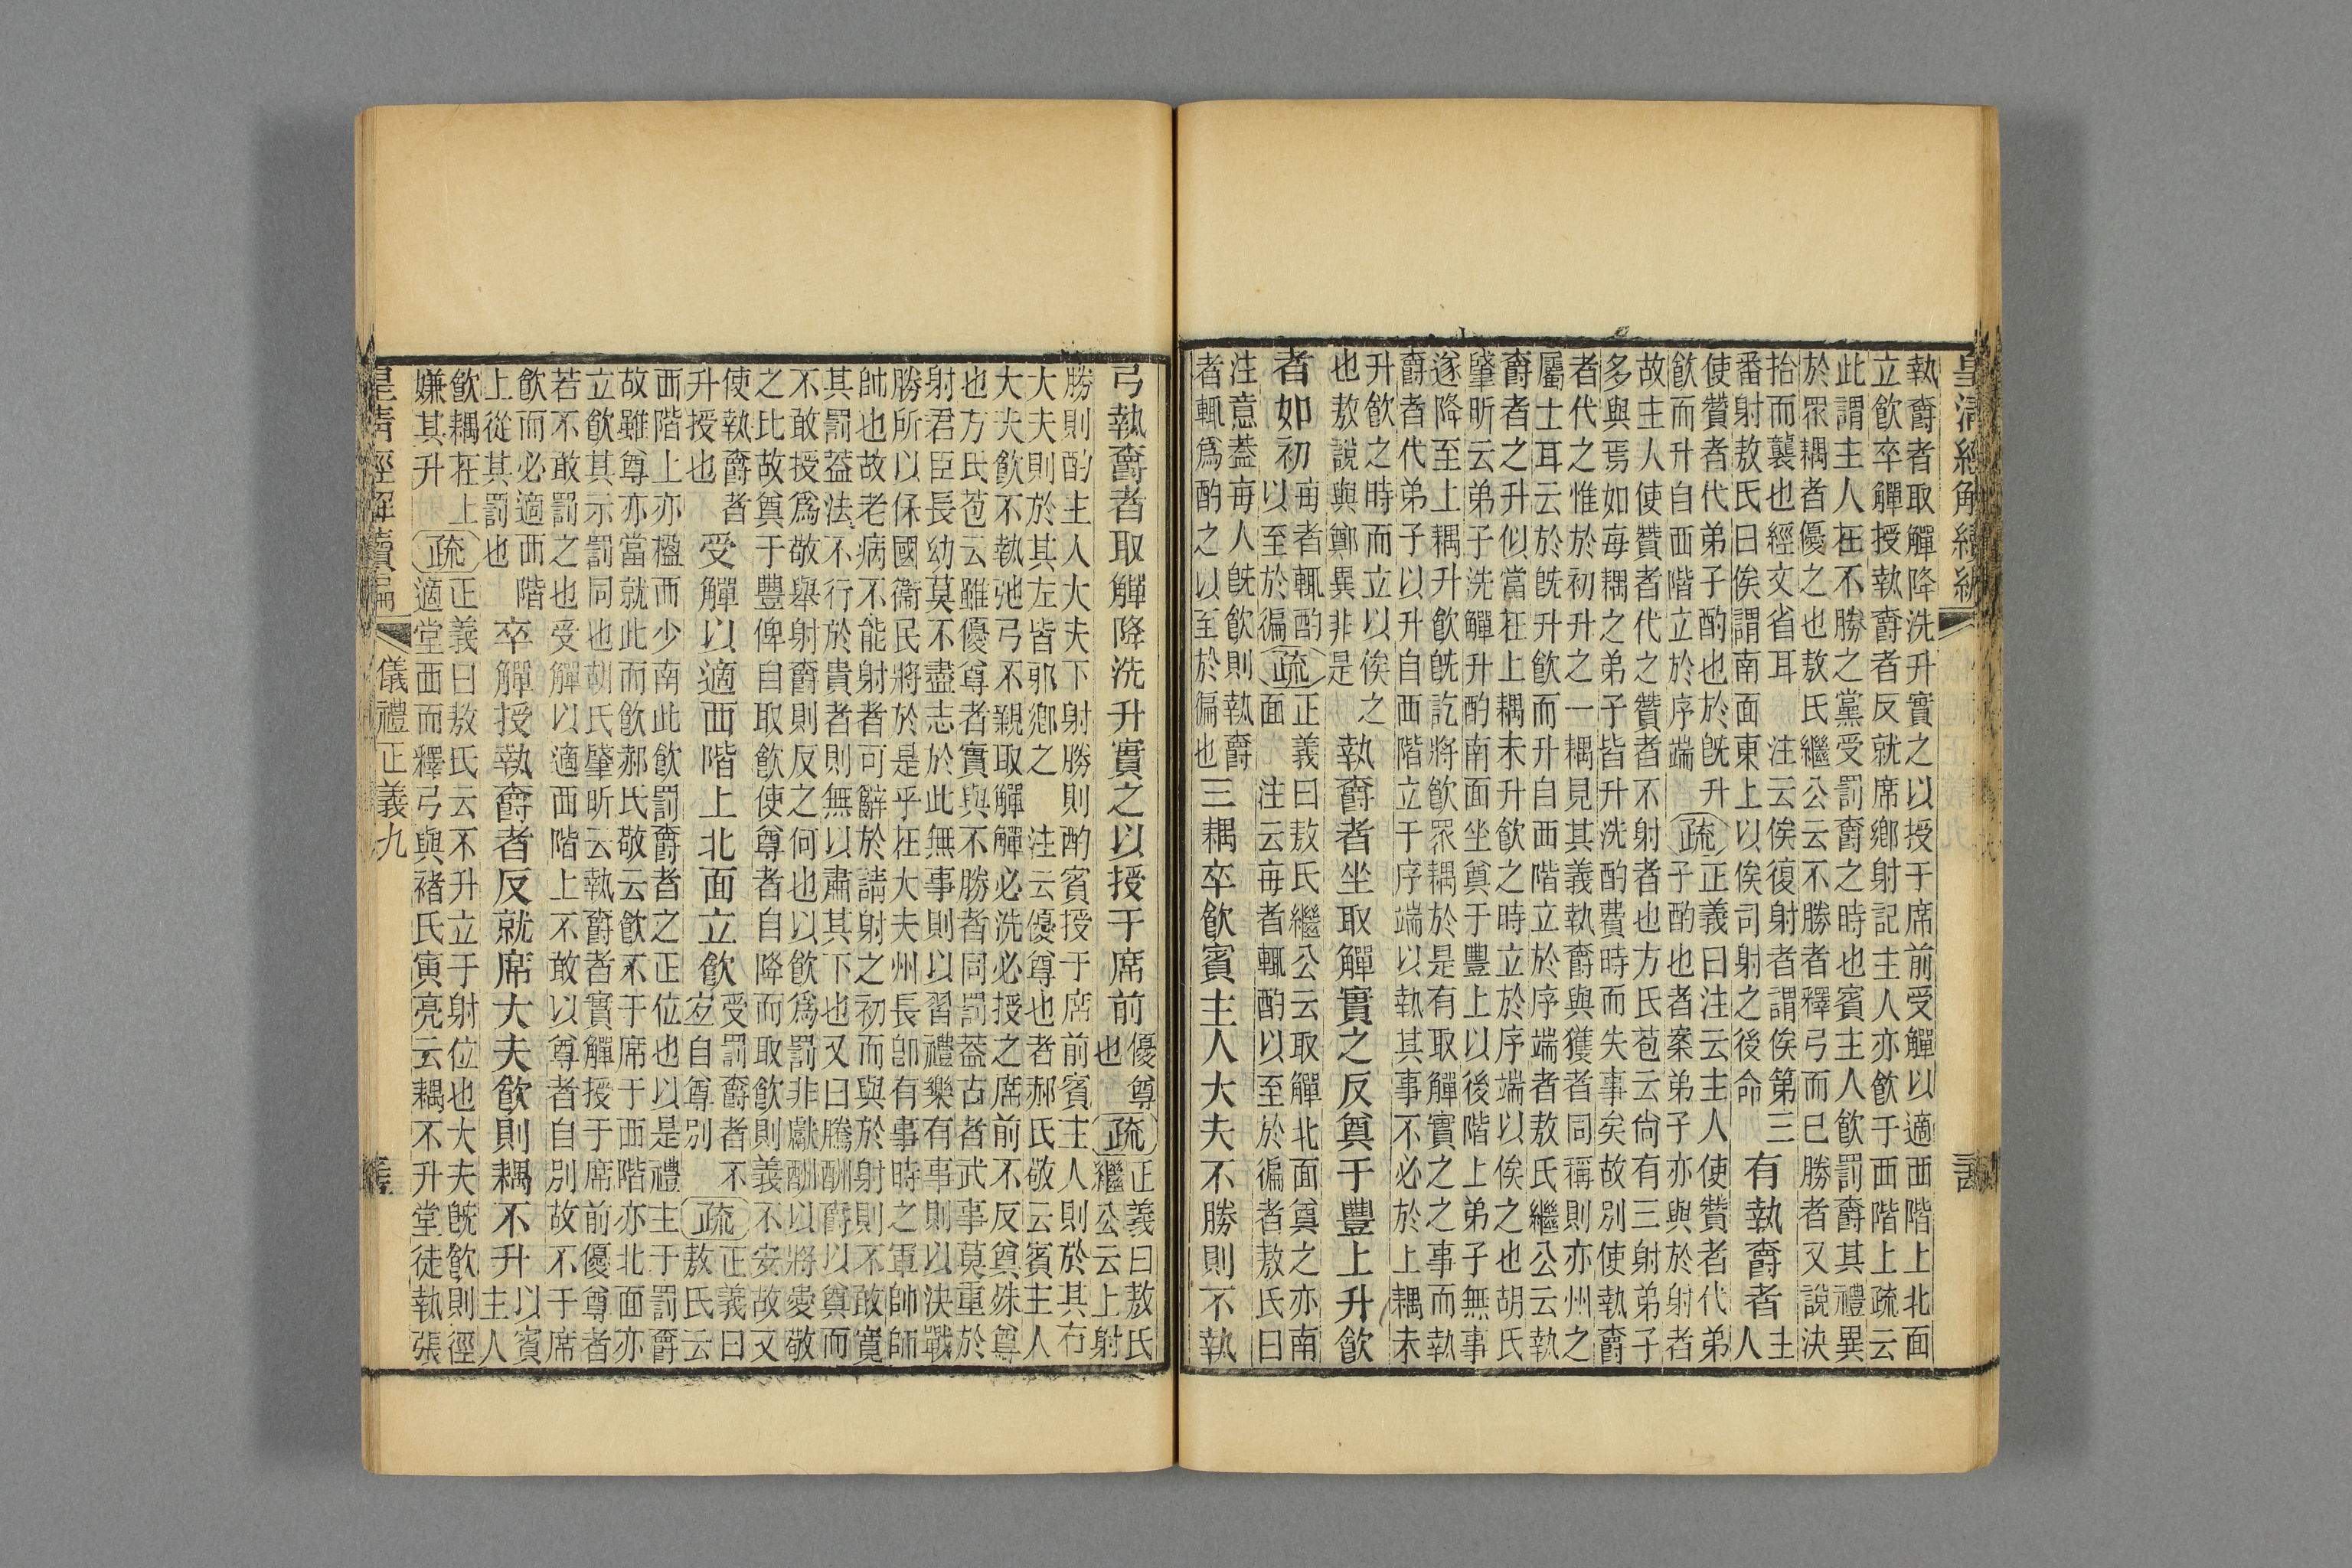 皇清經解續編
執爵者取觶降洗升實之以授于席前受觶以適西階上北面
立飲卒觶授執爵者反就席鄉射記主人亦飲于西階上疏云
此謂主人在不勝之黨受罰爵之時也賓主人飲罰爵其禮異
於眾耦者優之也敖氏繼公云不勝者釋弓而已勝者又說決
拾而襲也經文省耳　注云俟復射者謂俟第三
番射敖氏曰俟謂南面東上以俟司射之後命
有執爵者
主
人
使贊者代弟子酌也於既升
飲而升自西階立於序端
疏
正義曰注云主人使贊者代弟
子酌也者案弟子亦與於射者
故主人使贊者代之贊者不射者也方氏苞云尚有三射弟子
多與焉如每耦之弟子皆升洗酌費時而失事矣故別使執爵
者代之惟於初升之一耦見其義執爵與獲者同稱則亦州之
屬士耳云於既升飲而升自西階立於序端者敖氏繼公云執
爵者之升似當在上耦未升飲之時立於序端以俟之也胡氏
肇昕云弟子洗觶升酌南面坐奠于豐上以後階上弟子無事
遂降至上耦升飲既訖將飲眾耦於是有取觶實之之事而執
爵者代弟子以升自西階立于序端以執其事不必於上耦未
升飲之時而立以俟之
也敖說與鄭異非是
執爵者坐取觶實之反奠于豐上升飲
者如初
每者輒酌
以至於徧
疏
正義曰敖氏繼公云取觶北面奠之亦南
面　注云每者輒酌以至於徧者敖氏曰
注意蓋每人既飲則執爵
者輒爲酌之以至於徧也
三耦卒飲賓主人大夫不勝則不執
弓執爵者取觶降洗升實之以授于席前
優尊
也
疏
正義曰敖氏
繼公云上射
勝則酌主人大夫下射勝則酌賓授于席前賓主人則於其右
大夫則於其左皆邪鄉之　注云優尊也者郝氏敬云賓主人
大夫飲不執弛弓不親取觶觶必洗必授之席前不反奠殊尊
也方氏苞云雖優尊者實與不勝者同罰蓋古者武事莫重於
射君臣長幼莫不盡志於此無事則以習禮樂有事則以決戰
勝所以保國衞民將於是乎在大夫州長卽有事時之軍帥師
帥也故老病不能射者可辭於請射之初而與於射則不敢寬
其罰蓋法不行於貴者則無以肅其下也又曰騰酬爵以奠而
不敢授爲敬舉射爵則反之何也以飲爲罰非獻酬以將愛敬
之比故奠于豐俾自取飲使尊者自降而取飲則義不安故又
使執爵者
升授也
受觶以適西階上北面立飲
受罰爵者不
宜自尊別
疏
正義曰
敖氏云
西階上亦楹西少南此飲罰爵者之正位也以是禮主于罰爵
故雖尊亦當就此而飲郝氏敬云飲不于席于西階亦北面亦
立飲其示罰同也胡氏肇昕云執爵者實觶授于席前優尊者
若不敢罰之也受觶以適西階上不敢以尊者自別故不于席
飲而必適西階
上從其罰也
卒觶授執爵者反就席大夫飲則耦不升
以賓
主人
飲耦在上
嫌其升
疏
正義曰敖氏云不升立于射位也大夫既飲則徑
適堂西而釋弓與褚氏寅亮云耦不升堂徒執張
皇清經解續編
儀禮正義九